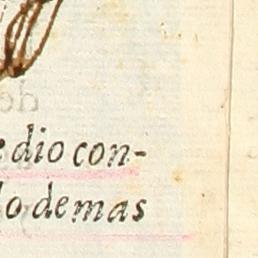 dio con-
lo demas